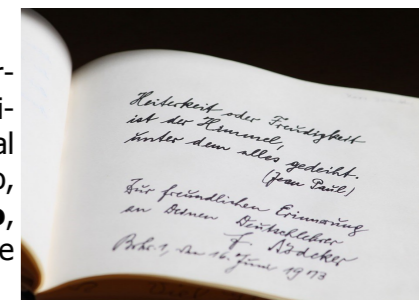 r-
i-
al
o,
o,
e
Heiterkeit oder Freudigkeit
ist der Himmel,
unter dem alles gedeiht.
(Jean Paul)
Zur freundlichen Erinnerung
an Deinen Deutschlehrer
F. Rödeker
den 16. Juni 1973